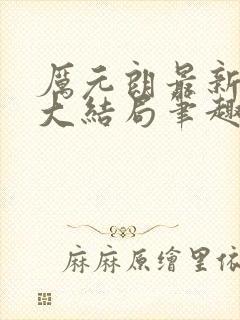 厲元朗最新
大結局筆趣
麻麻原繪里依